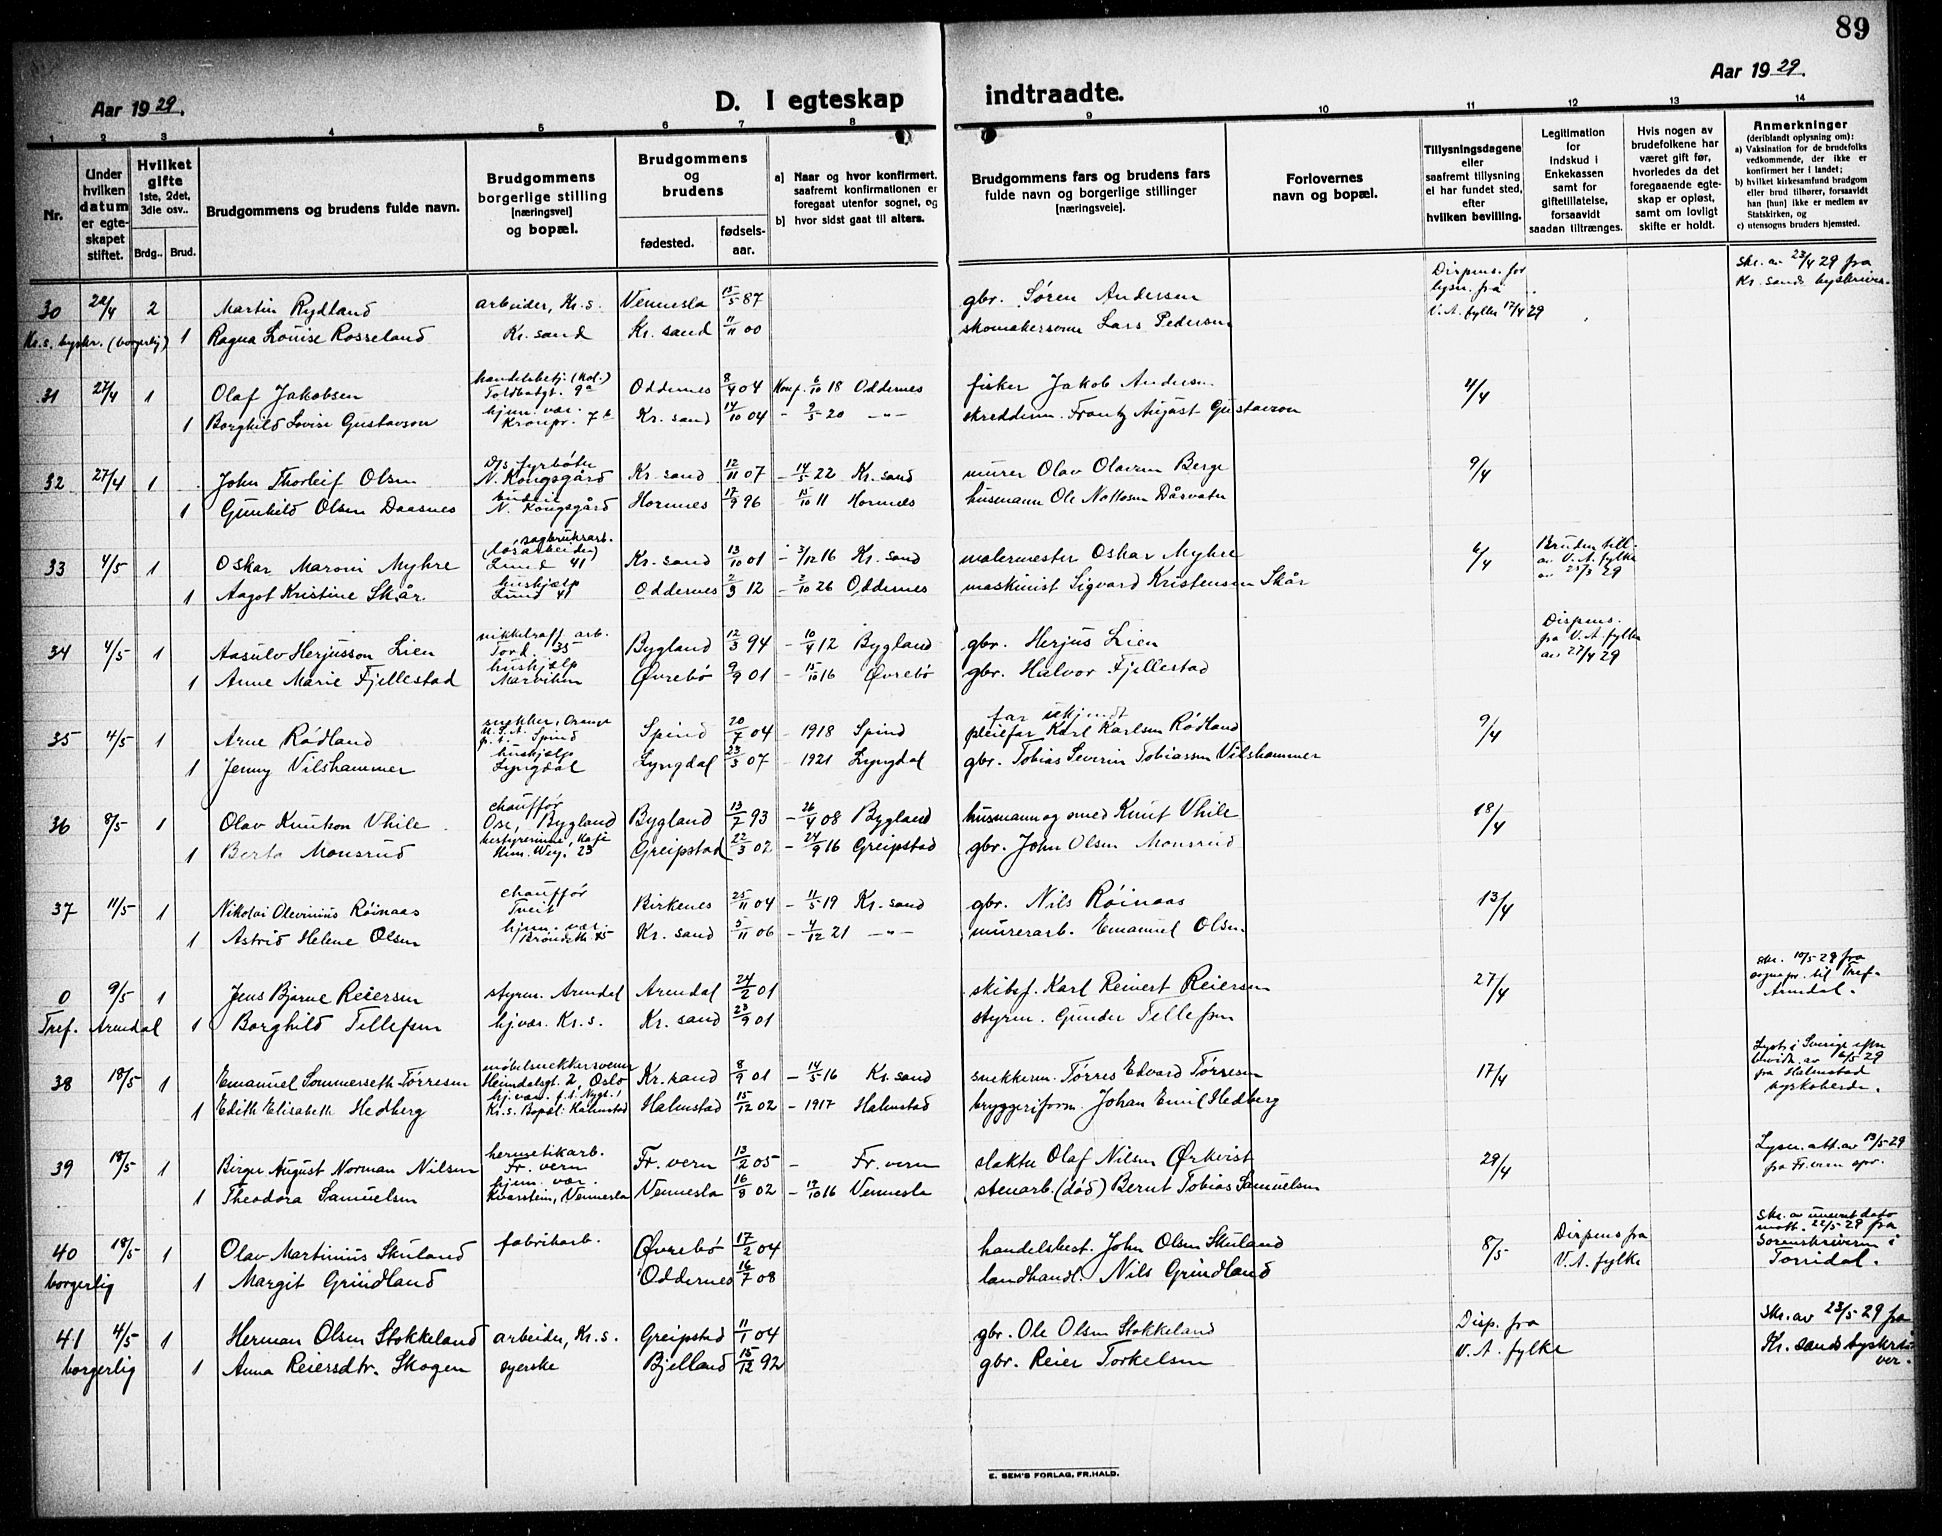 89
Aar 1929.
D. I egteskap indtraadte.
Aar 1929.
1 2 3 4 5 6 7 8 9 10 11 12 13 14
Nr.
Under hvilken datum er egteskapet stiftet.
Hvilket gifte 1ste, 2det, 3die osv..
Brdg.. Brud.
Brudgommens og brudens fulde navn.
Brudgommens borgerlige stilling [næringsvei] og bopæl.
Brudgommens og brudens
fødested. fødselsaar.
a) Naar og hvor konfirmert, saafremt konfirmationen er foregaat utenfor sognet, og
b) hvor sidst gaat til alters.
Brudgommens fars og brudens fars fulde navn og borgerlige stillinger [næringsveie].
Forlovernes navn og bopæl.
Tillysningsdagene eller saafremt tillysning ei har fundet sted, efter hvilken bevilling.
Legitimation for Indskud i Enkekassen samt for giftetillatelse, forsaavidt saadan tiltrænges.
Hvis nogen av brudefolkene har været gift før, hvorledes da det foregaaende egteskap er opløst, samt om lovligt skifte er holdt.
Anmerkninger
(deriblandt oplysning om):
a) Vaksination for de brudefolks vedkommende, der ikke er konfirmert her i landet;
b) hvilket kirkesamfund brudgom eller brud tilhører, forsaavidt han [hun] ikke er medlem av Statskirken, og
c) utensogns bruders hjemsted.
30 22/4 2 Martin Rydland arbeider, Kr.s. Vennesla 15/5 87 gbr. Søren Andersen Dispens. for lysn. fra V.A. fylke 17/4 29 Skr. av 23/4 29 fra Kr.sands byskriver
Kr.s. byskr. (borgerlig) 1 Ragna Louise Rosseland Kr.sand Kr.sand 11/11 00 skomakersvenn Lars Pedersen
31 27/4 1 Olaf Jakobsen handelsbetj. (kol.) Toldbodgt. 9a Oddernes 8/4 04 Konf. 6/10 18 Oddernes fisker Jakob Andersen 11/4
1 Borghild Lovise Gustavson hjem. vær. Kronpr. 7b Kr.sand 14/10 04 - 9/5 20 -"- skredderm. Frantz August Gustavson
32 27/4 1 John Thorleif Olsen D/s fyrbøter N. Kongsgård Kr.sand 12/11 07 - 14/5 22 Kr.sand murer Olav Olavsen Berge 9/4
1 Gunhild Olsen Daasnes N. Kongsgård Hornnes 17/9 96 15/10 11 Hornnes husmann Ole
33 4/5 1 Oskar Maroni Myhre sagbruksarb. (løsarbeider) Lund 41 Kr.sand 13/10 01 - 3/12 16 Kr.sand malermester Oskar Myhre 6/4 Bruden till. av V.A. fylke av 25/3 29
1 Aagot Kristine Skår hushjælp Lund 41 Oddernes 2/3 12 - 2/10 26 Oddernes maskinist Sigvard Kristensen Skår
34 4/5 1 Aasulv Herjusson Lien nikkelraff. arb. Tord. 35 Bygland 12/3 94 - 10/4 12 Bygland gbr. Herjus Lien Dispens. fra V.A. fylke av 27/4 29
1 Anne Marie Fjellestad hushjælp Marviken Øvrebø 9/9 01 - 15/10 16 Øvrebø gbr. Halvor Fjellestad
35 4/5 1 Arne Rødland snekker, Orange U.S.A. p.t. Spind Spind 20/7 04 - 1918 Spind far ukjendt pleiefar Karl Karlsen Rødland 9/4
1 Jenny Vilshammer hushjælp Lyngdal Lyngdal 23/3 07 - 1921 Lyngdal gbr. Tobias Severin Tobiassen Vilshammer
36 8/5 1 Olav Knutson Uhile chauffør Ose, Bygland Bygland 13/7 93 - 26/4 08 Bygland husmann og smed Knut Uhile 18/4
1 Berta Monsrud bestyrerinne, Kafe Hen. Weg. 23 Greipstad 22/3 02 - 24/9 16 Greipstad gbr. John Olsen Monsrud
37 11/5 1 Nikolai Olevinius Røinaas chauffør Tveit Birkenes 25/11 04 - 11/5 19 Kr.sand gbr. Nils Røinaas 13/4
1 Astrid Helene Olsen hjem. vær. Kr.sand 5/11 06 - 4/12 21 -"- murerarb. Emanuel Olsen
0 9/5 1 Jens Bjarne Reiersen styrm. Arendal Arendal 24/2 01 skibsf. Karl Reinert Reiersen 27/4 skr. 10/5-29 fra sognepr. til Tref. Arendal.
Tref. Arendal 1 Borghild Tellefsen hj.vær. Kr.s. Kr.sand 23/9 01 styrm. Gunder Tellefsen
38 18/5 1 Emanuel Sommerseth Tørresen møbelsnekkersvenn Heimdalsgt. 2, Oslo Kr.sand 8/9 01 - 14/5 16 Kr.sand snekkerm. Tørres Edvard Tørresen 17/4 Lyst i Sverige av 6/5 29 fra Halmstad kyrkoherde.
1 Edith Elisabeth Hedberg Kr.s. Bopæl: Halmstad Halmstad 15/12 02 - 1917 Halmstad bryggeriform. Johan Emil Hedberg
39 18/5 1 Birger August Norman Nilsen hermetikarb. Fr.vern Fr.vern 13/2 05 - Fr.vern slakter Olaf Nilsen Ørkvist 29/4 Lysn. att. av 13/5-29 fra Fr.vern spr.
1 Theodora Samuelsen hjem. vær. Kvarstein, Vennesla Vennesla 16/8 02 - 12/10 16 Vennesla stenarb. (død) Bernt Tobias Samuelsen
40 18/5 1 Olav Martinius Skuland fabrikarb. Øvrebø 17/2 04 handelsbest. John Olsen Skuland 8/5 Dispens fra V.A. fylke skr. av uneset dato mott. 22/5-29 fra Sorenskriveren i Torridal.
borgerlig 1 Margit Grindland Oddernes 16/7 08 landhandl. Nils Grindland
41 4/5 1 Herman Olsen Stokkeland arbeider, Kr.s. Greipstad 11/1 04 gbr. Ole Olsen Stokkeland Disp. fra V.A. fylke Skr. av 23/5-29 fra Kr.sands byskriver.
borgerlig 1 Anna Reiersdtr. Skogen syerske Bjelland 15/12 92 gbr. Reier Torkelsen
E. SEM'S FORLAG, FR.HALD.